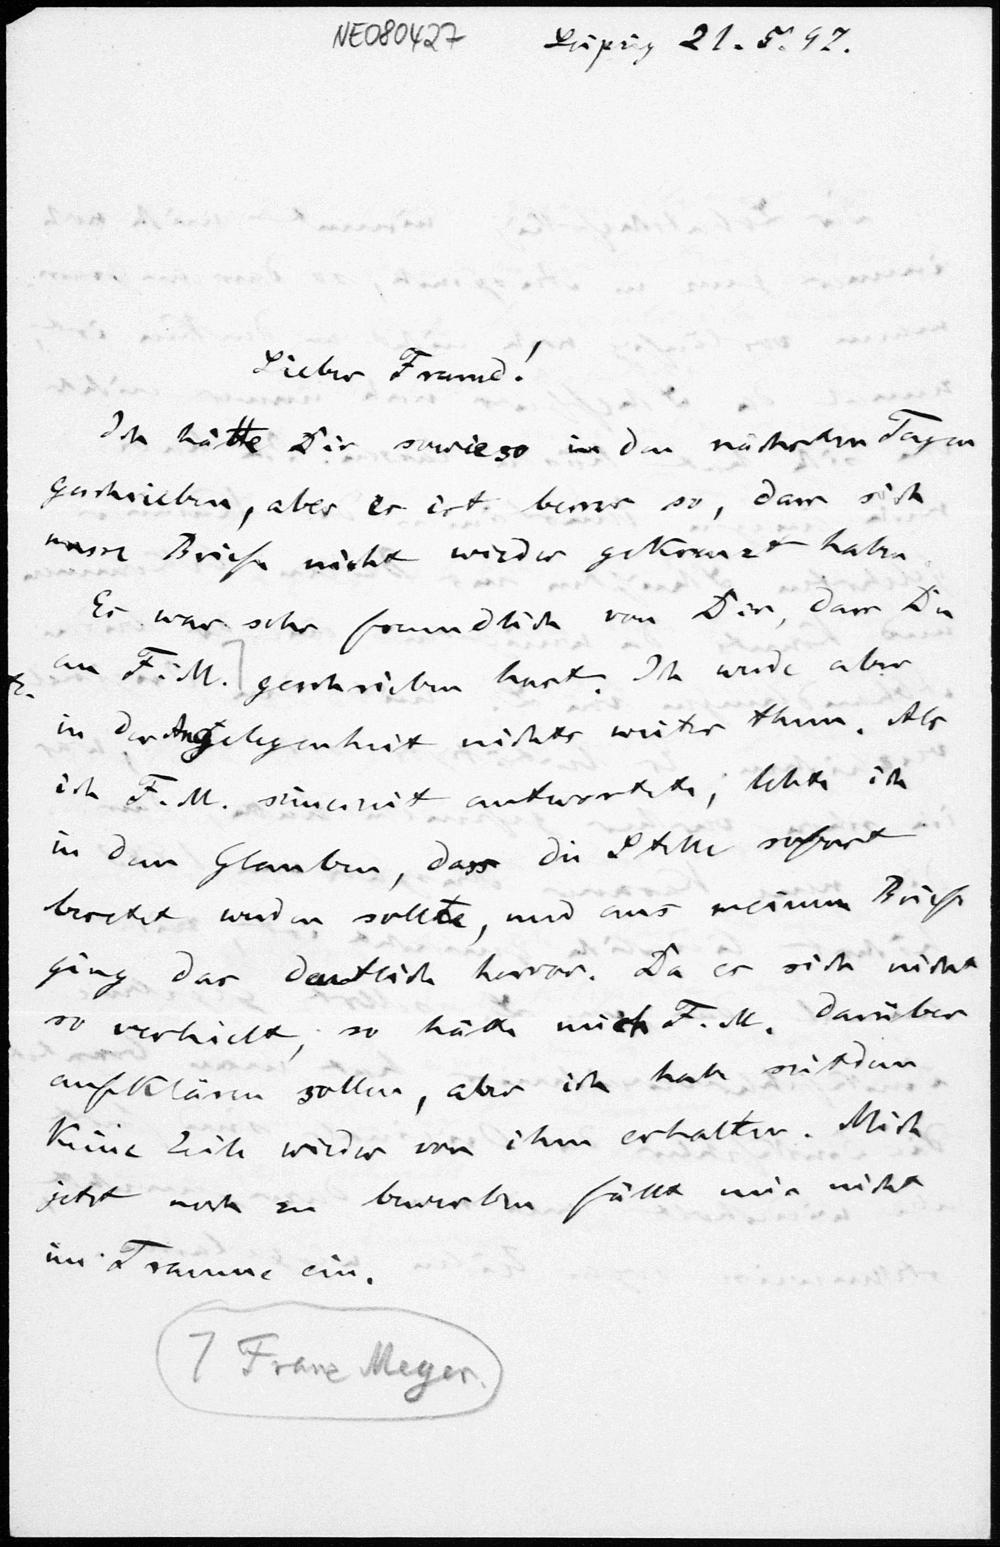 NE080427
Leipzig 21.5.97.
Lieber Freund!
Ich hätte Dir sowieso in den nächsten Tagen
geschrieben, aber es ist besser so, dass sich
unsre Briefe nicht wieder gekreuzt haben.
Es war sehr freundlich von Dir, dass Du
an F. M. geschrieben hast. Ich werde aber
in der Angelegenheit nichts weiter thun. Als
ich F. M. seinerzeit antwortete, lebte ich
in dem Glauben, dass die Stelle sofort
besetzt werden sollte, und aus meinem Briefe
ging das deutlich hervor. Da es sich nicht
so verhielt, so hätte mich F. M. darüber
aufklären sollen, aber ich habe seitdem
keine Zeile wieder von ihm erhalten. Mich
jetzt noch zu bewerben fällt mir nicht
im Traume ein.
Franz Meyer.